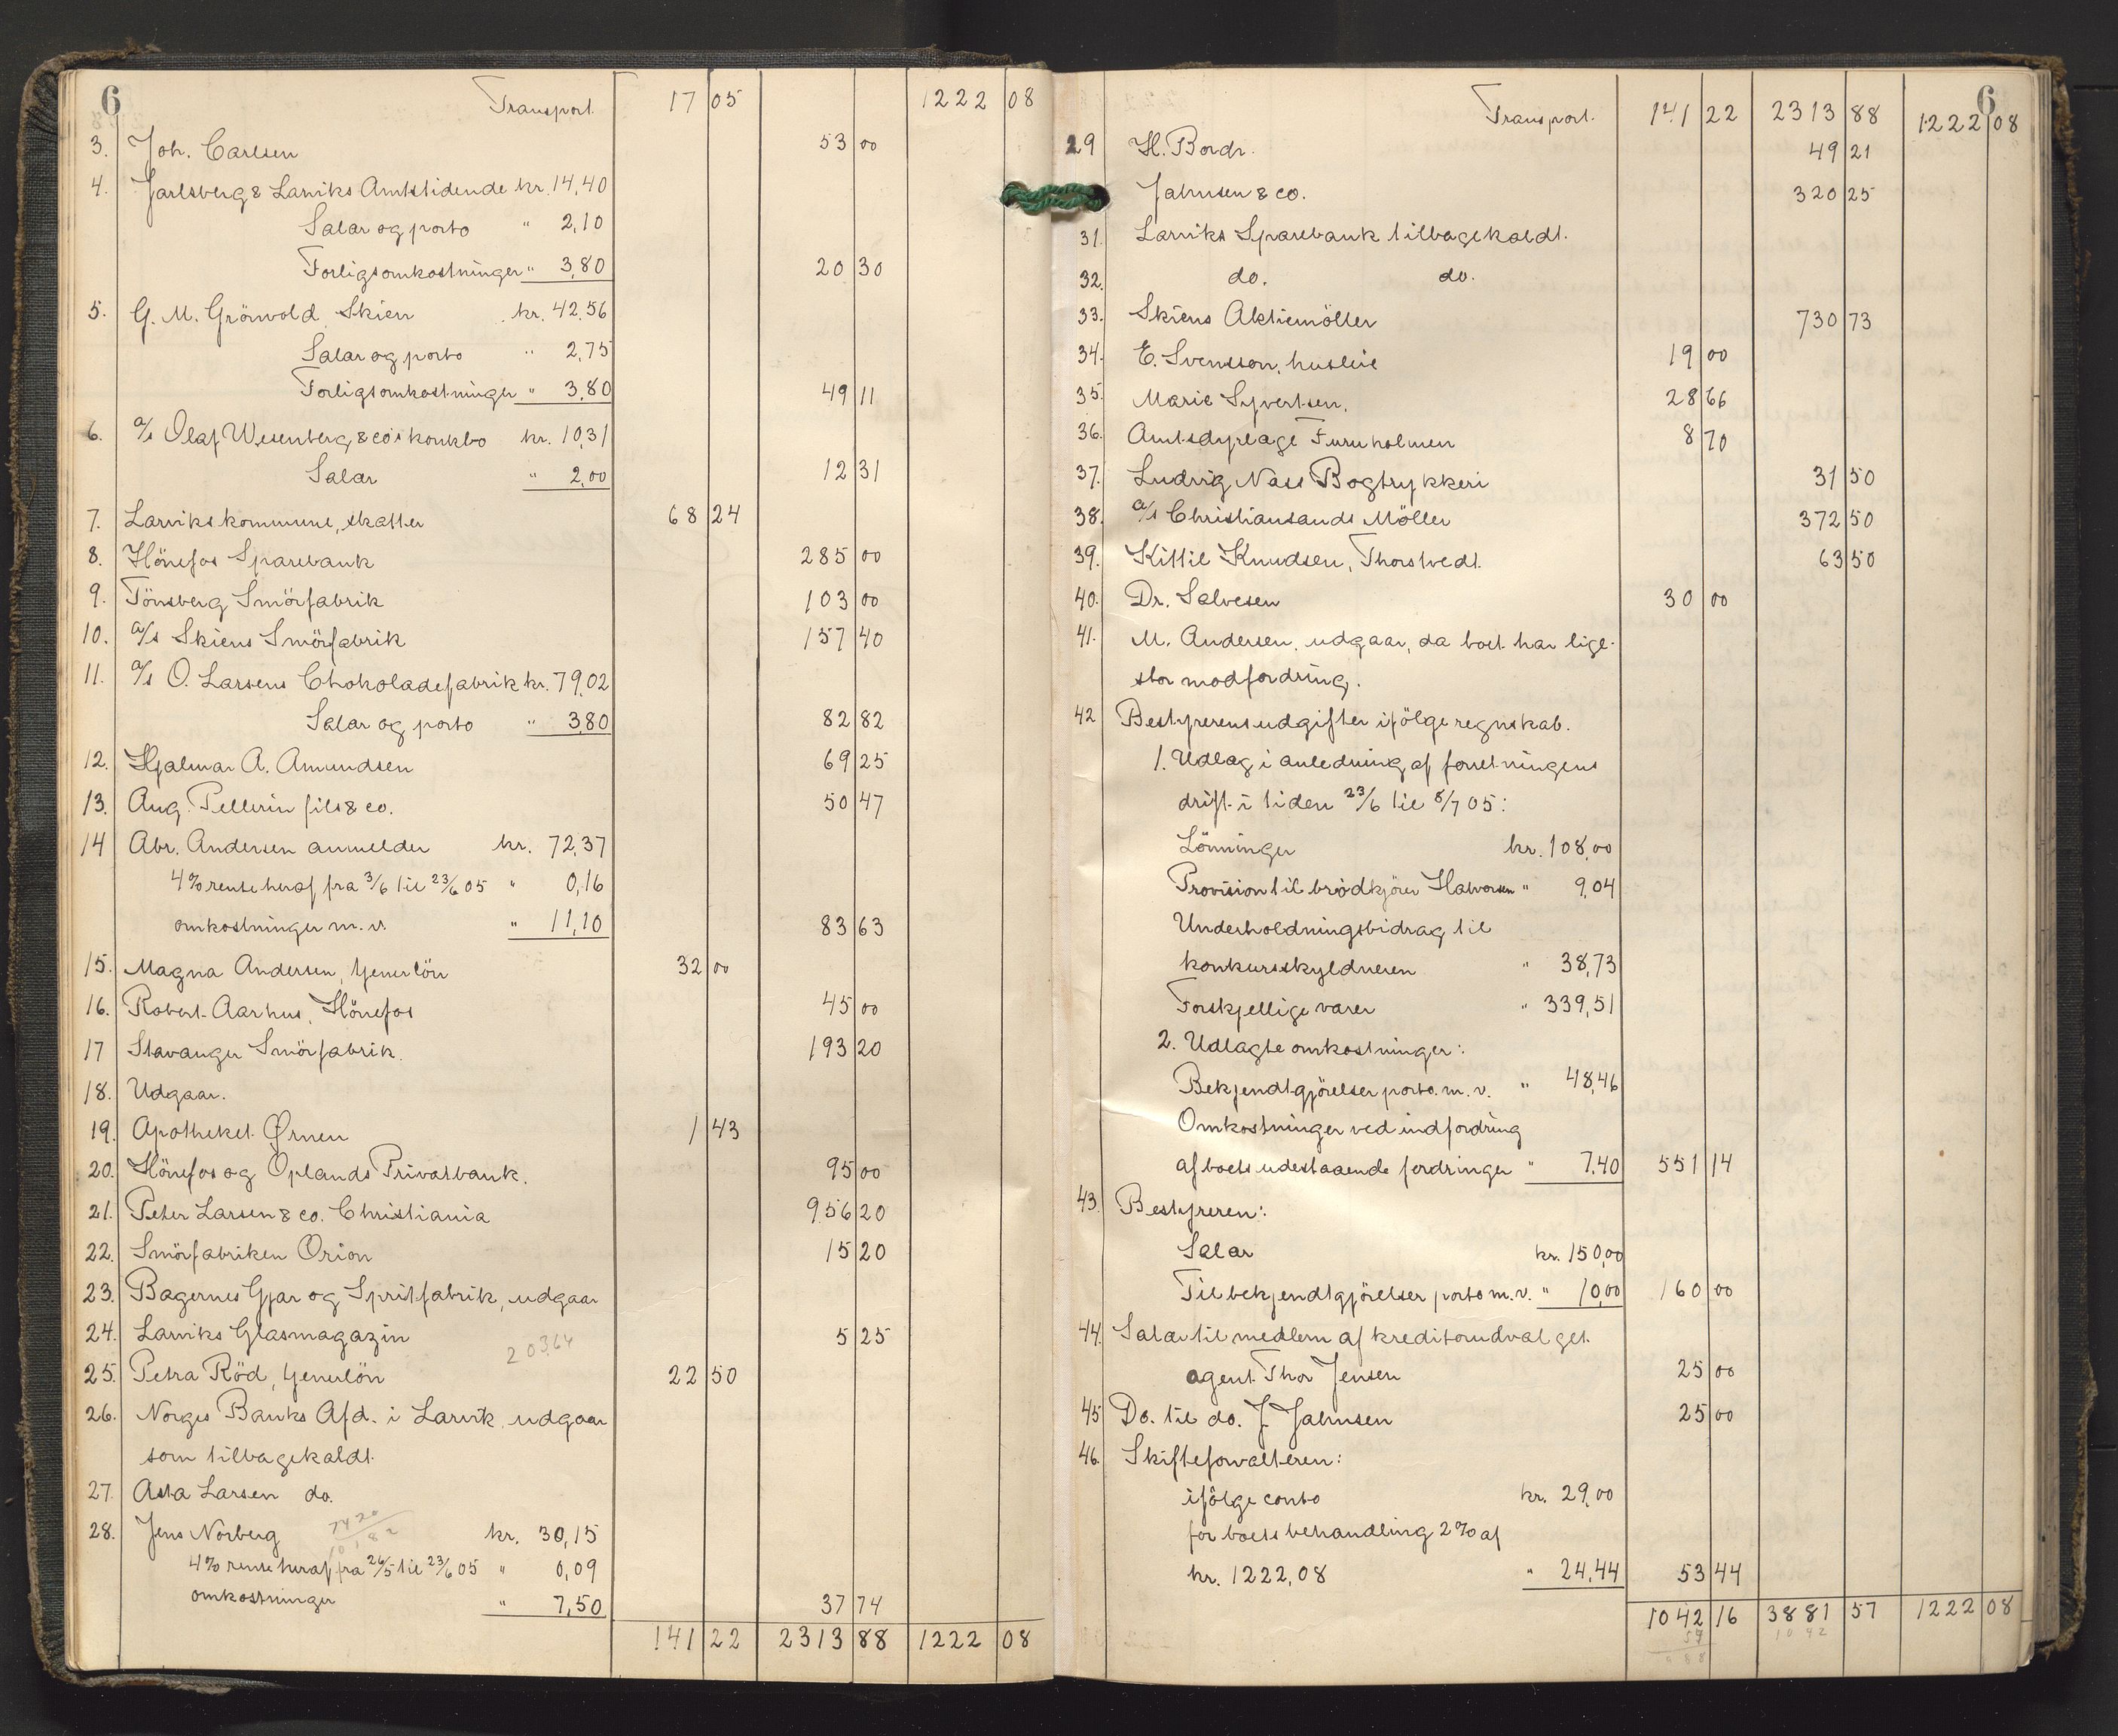 6 Transport. 17 05 1222 08
3. Joh. Carlsen 53 00
4. Jarlsberg & Larviks Amtstidende kr. 14,40
Salær og porto " 2,10
Forligsomkostninger " 3,80 20 30
5. G. M. Grönvold Skien kr. 42,56
Salær og porto " 2,75
Forligsomkostninger " 3,80 49 11
6. a/s Olaf Wesenberg & co's konkbo kr. 10,31
Salær " 2,00 12 31
7. Larviks kommune, skatter 68 24
8. Hönefos Sparebank 285 00
9. Tönsberg Smörfabrik 103 00
10. a/s Skiens Smörfabrik 157 40
11. a/s O. Larsens Chokoladefabrik kr. 79,02
Salær og porto " 3,80 82 82
12. Hjalmar A. Amundsen 69 25
13. Aug. Pellerin fils & co. 50 47
14 Abr. Andersen anmelder kr. 72,37
4% rente heraf fra 3/6 til 23/6 05 " 0,16
omkostninger m. v. " 11,10 83 63
15. Magna Andersen, tjenerlön 32 00
16. Robert Aarhus, Hönefos 45 00
17 Stavanger Smörfabrik. 193 20
18. Udgaar.
19. Apotheket Ørnen 1 43
20. Hönefos og Oplands Privatbank. 95 00
21. Peter Larsen & co. Christiania 956 20
22. Smörfabriken Orion 15 20
23. Bagernes Gjær og Spritfabrik, udgaar
24. Larviks Glasmagazin 5 25
203,64
25. Petra Röd, tjenerlön 22 50
26. Norges Banks Afd. i Larvik udgaar
som tilbagekaldt.
27. Asta Larsen do.
28. Jens Norberg kr. 30,15
4% rente heraf fra 26/5 til 23/6 05 " 0,09
omkostninger " 7,50 37 74
141 22 2313 88 1222 08
6
Transport. 141 22 2313 88 1222 08
29 H. Bordr. 49 21
Jahnsen & co. 320 25
31. Larviks Sparebank tilbagekaldt.
32. do. do.
33. Skiens Aktiemöller 730 73
34. E. Svensson, husleie 19 00
35. Marie Syvertsen. 28 66
36. Amtsdyrlæge Furuholmen 8 70
37. Ludvig Næss Bogtrykkeri 31 50
38. a/s Christiansands Möller 372 50
39. Kittil Knudsen, Thorstvedt. 63 50
40. Dr. Salvesen 30 00
41. M. Andersen, udgaar, da boet har lige-
stor modfordring.
42 Bestyrerens udgifter ifölge regnskab.
1. Udlæg i anledning af forretningens
drift i tiden 23/6 til 8/7 05:
Lönninger kr. 108,00
Provision til brödkjörer Halvorsen " 9,04
Underholdningsbidrag til
konkursskyldneren " 38,73
Forskjellige varer " 339,51
2. Udlagte omkostninger:
Bekjendtgjörelser porto m. v. " 48,46
Omkostninger ved indfordring
af boets udestaaende fordringer " 7,40 551 14
43. Bestyreren:
Salær kr. 150,00
Til bekjendtgjörelser porto m. v. " 10,00 160 00
44. Salær til medlem af kreditorudvalget.
agent Thor Jensen 25 00
45 Do. til do. J. Jahnsen 25 00
46. Skifteforvalteren:
ifölge conto kr. 29,00
for boets behandling 2% af
kr. 1222,08 " 24,44 53 44
1042 16 3881 57 1222 08
1042